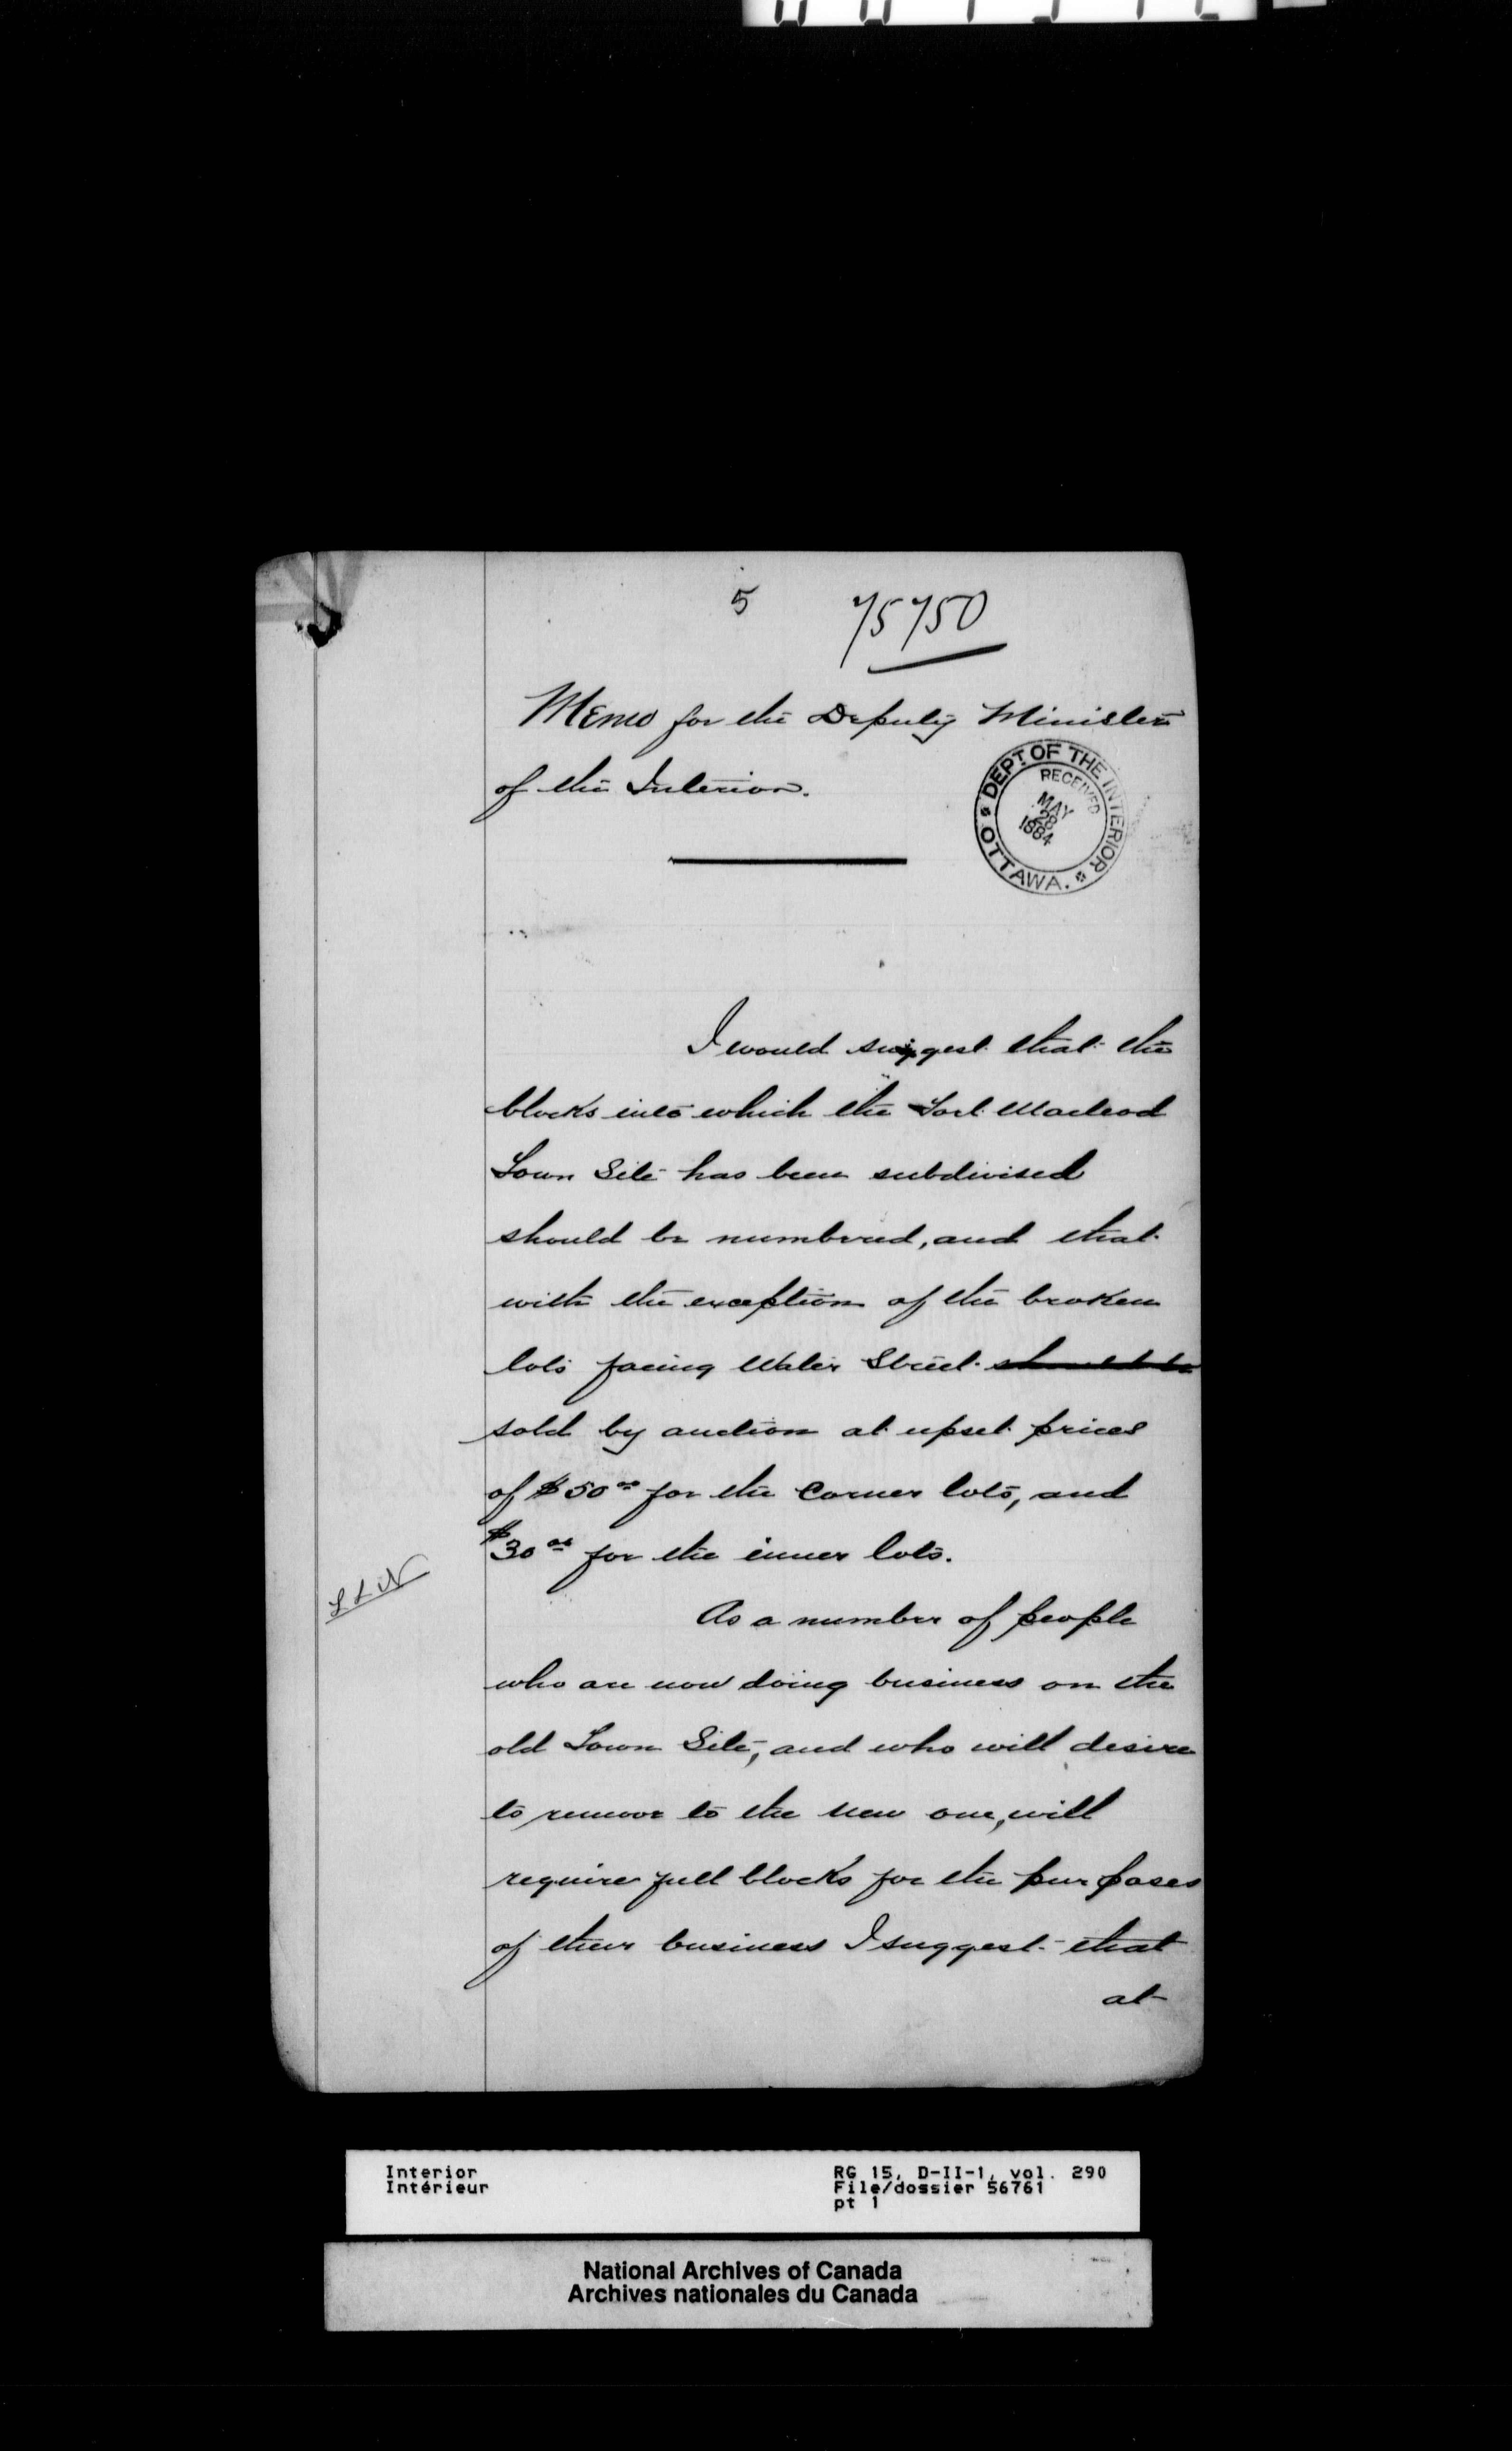 5
75750
Memo for the Deputy Minister
of the Interior.
DEPT. OF THE INTERIOR
RECEIVED
MAY
28
1884
OTTAWA.
I would suggest that the
blocks into which the Fort Macleod
Town Site has been subdivised
should be numbered, and that
with the exception of the broken
lots facing Water Street should be
sold by auction at upset prices
of $50 00 for the Corner lots, and
$30 00 for the inner lots.
As a number of people
who are now doing business on the
old Town Site, and who will desire
to remove to the new one, will
require full blocks for the purposes
of their business I suggest that
at
Interior
Intérieur
RG 15, D-II-1, vol. 290
File/dossier 56761
pt 1
National Archives of Canada
Archives nationales du Canada